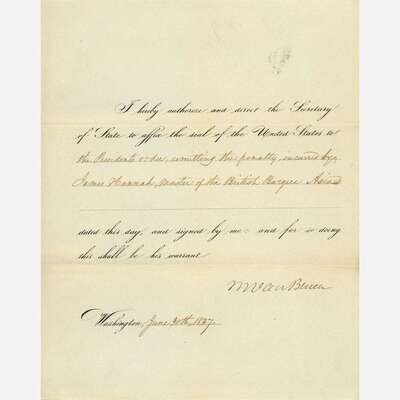 I hereby authorize and direct the Secretary
of State to affix the seal of the United States to
the President's remitting the penalty, incurred by
James Hannah, Master of the British Barque
dated this day, and signed by me: and for so doing
this shall be his warrant.
M Van Buren
Washington, June 30th, 1837.